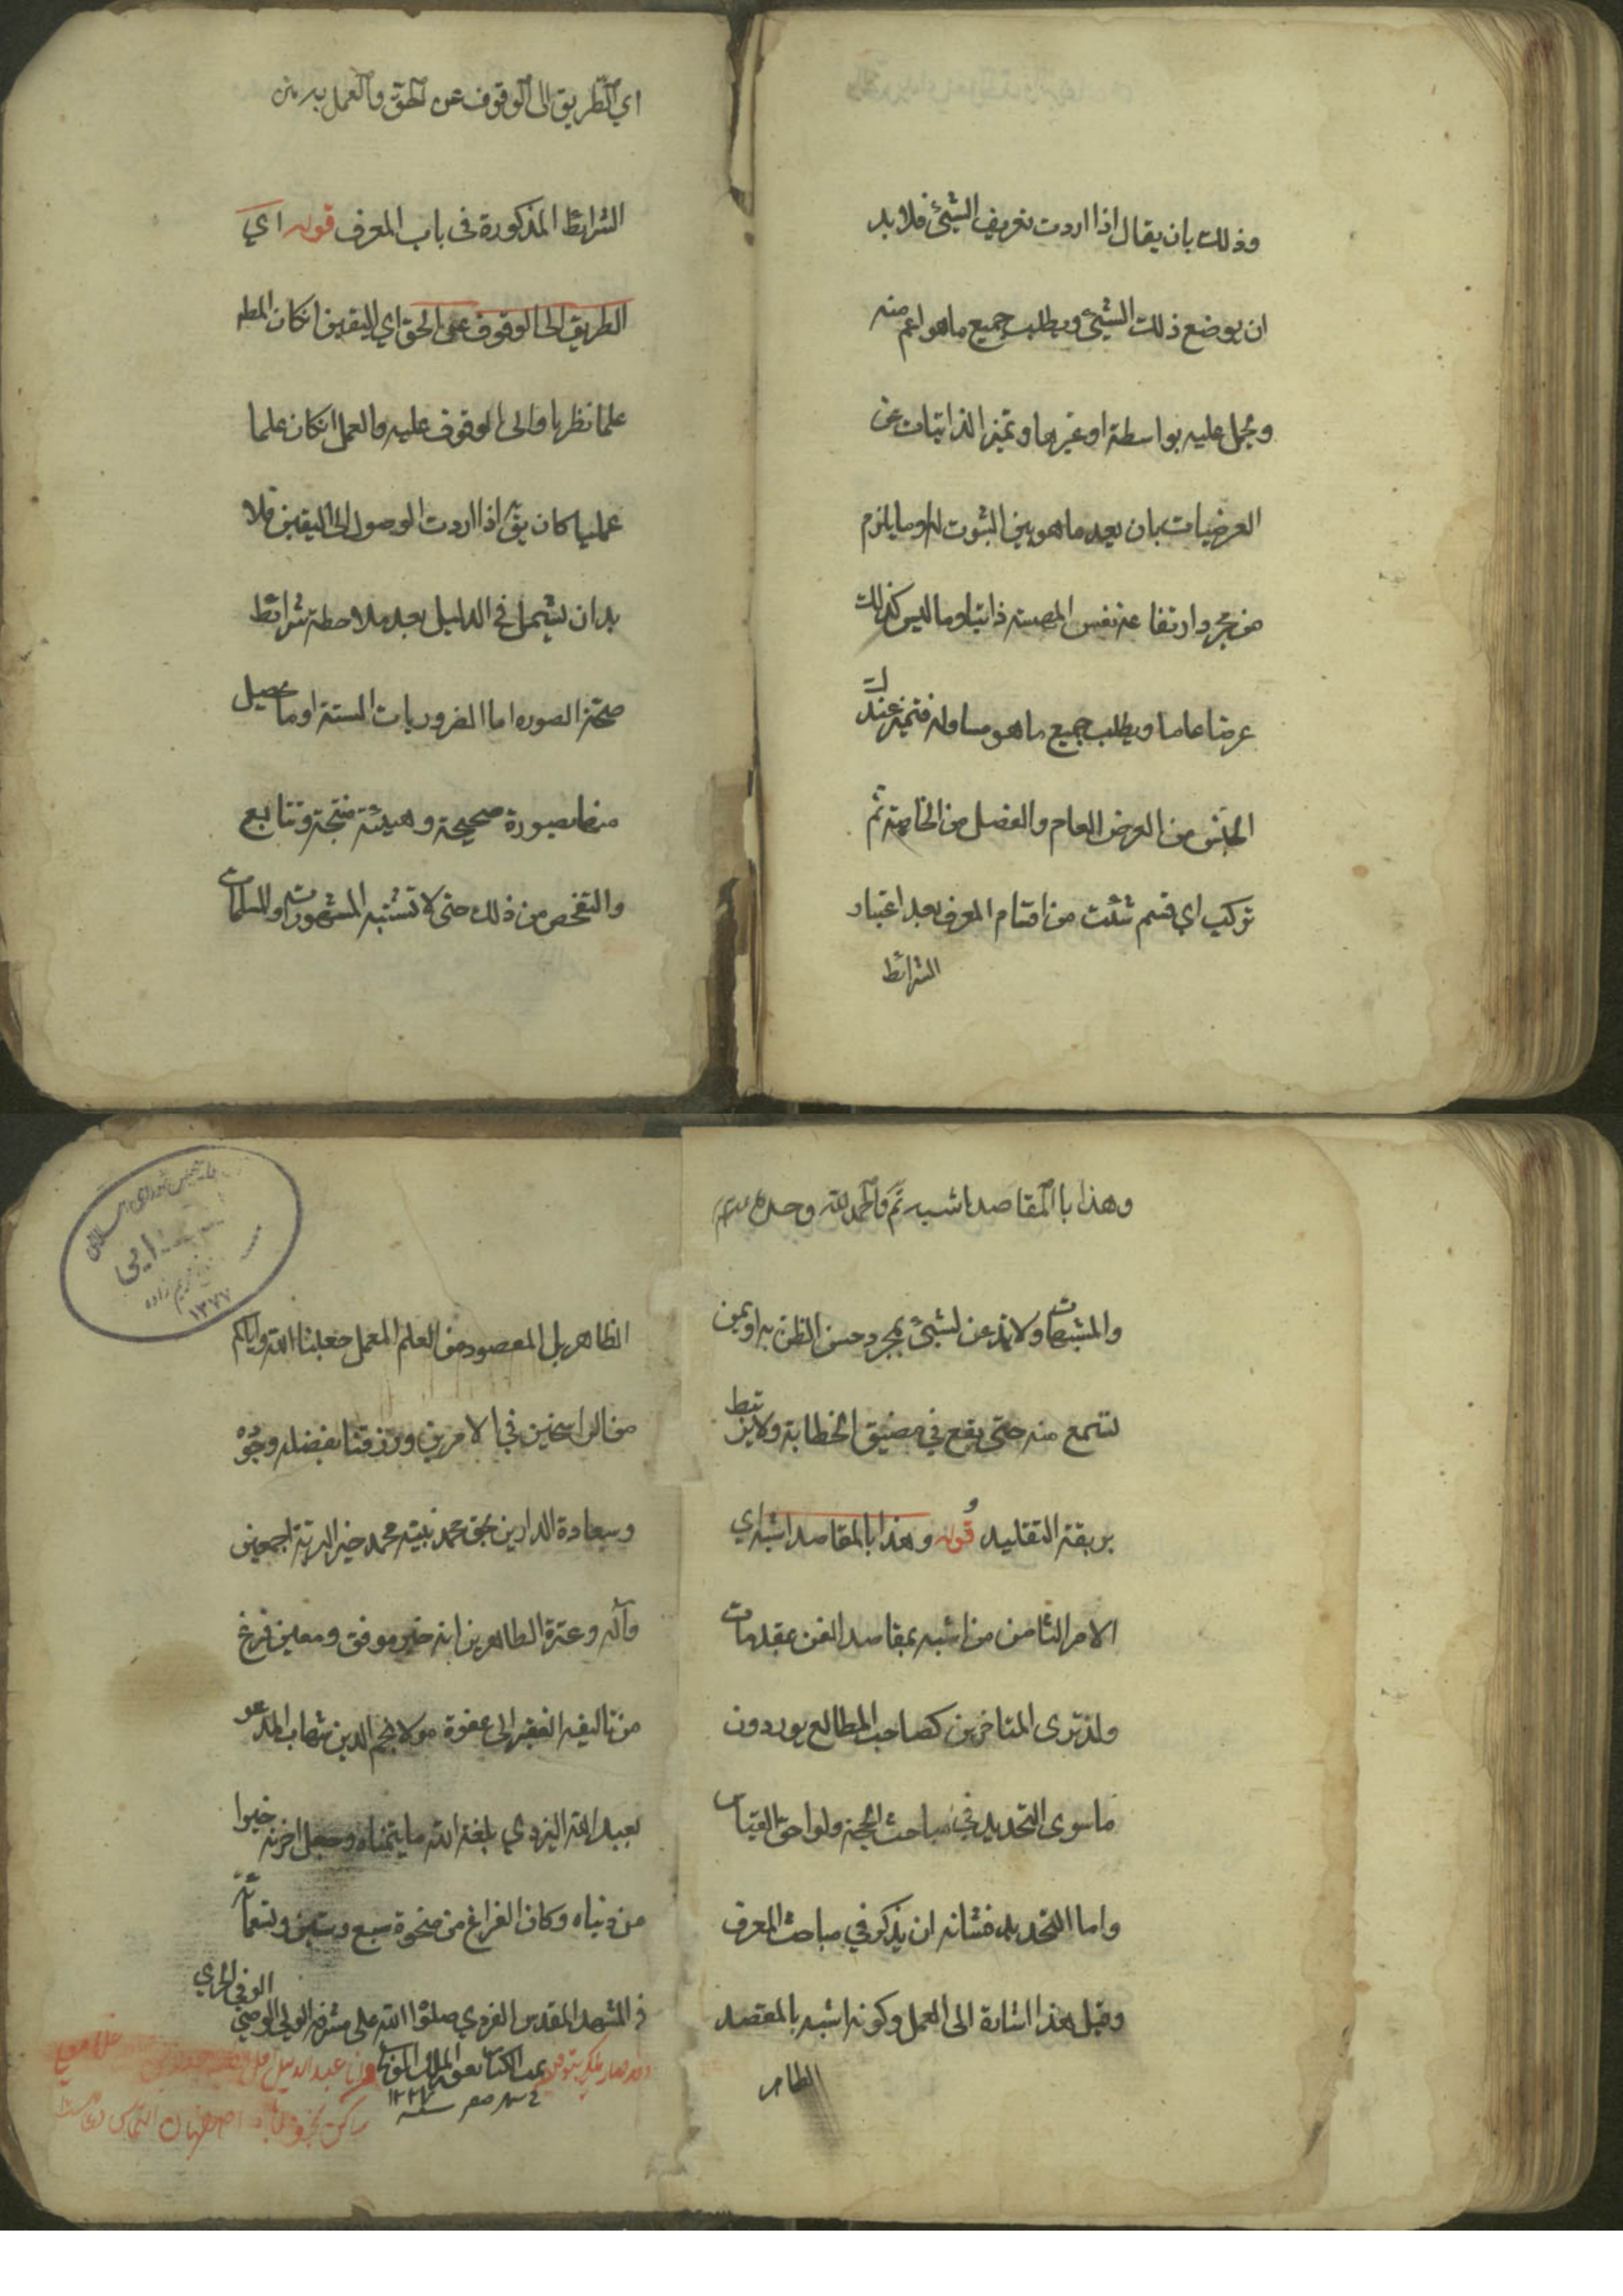 وذلك بان يقال اذا اردت تعريف الشيئ فلا بد
ان يوضع ذلك الشيئ ويطلب جميع ما هو اعم منه
ويحمل عليه بواسطة او غيرها و تميز الذاتيات عن
العرضيات بان يعد ما هو بين الثبوت له او ما يلزم
من مجرد ارتفاعه نفس المهية ذاتيا وما ليس كذلك
عرضا عاما ويطلب جميع ما هو مساو له فتميز عندك
الجنس من العرض العام والفصل من الخاصة ثم
تركب اي قسم شئت من اقسام المعرف بعد اعتبار
الشرائط
اي الطريق الى الوقوف عن الحق والعمل به
الشرائط المذكورة في باب المعرف قوله اي
الطريق الى الوقوف على الحق اي اليقين انكان المط
علما نظريا والى الوقوف عليه والعمل انكان علما
عمليا كان يق اذا اردت الوصول الى اليقين فلا
بد ان تستعمل في الدليل بعد ملاحطة شرائط
صحة الصوره اما الضروريات الستة او ما يحصيل
منها بصورة صحيحة وهيئة منتجة وتتابع
والتفحص من ذلك حتى لا تشتبه المشهورات او المسلمات
وهذا با المقاصد اشبه تم والحمد لله وحده
والمشبهات ولا تذعن لشيئ بمجرد حسن الظن به او بمن
تسمع منه حتى يقع في مضيق الخطابة ولا يرتبط
بربقة التقليد قوله وهذا بالمقاصد اشبه اي
الامر الثامن من اشبه بمقاصد الفن بمقدمات
ولذ ترى المتاخرين كصاحب المطالع يوردون
ما سوى التحديد في مباحث الحجة ولواحق القياس
واما التحديد فشانه ان يذكر في مباحث المعرف
وقيل هذا اشارة الى العمل وكونه اشبه بالمقصد
الظاهر
الظاهر بل المقصود من العلم العمل جعلنا الله واياكم
من الراسخين في الامرين ورزقنا بفضله وجوده
وسعادة الدارين بحق محمد نبيه محمد خير البرية اجمعين
وآله وعترة الطاهرين انه خير موفق ومعين فرغ
من تاليفه الفقير الى عفوه مولا نجم الدين شهاب المدعو
بعبد الله اليزدي بلغه الله ما يتمناه وجعل اخرته خيرا
من دنياه وكان الفراغ من ضحوة سبع وستين وتسعمائة
في المشهد المقدس الغروي صلوا الله على مشرفه الولي الوصي
الوفي
تمت الكتاب بعون الملك
شهر صفر سنه ١٢٢٧
١٣٧٧